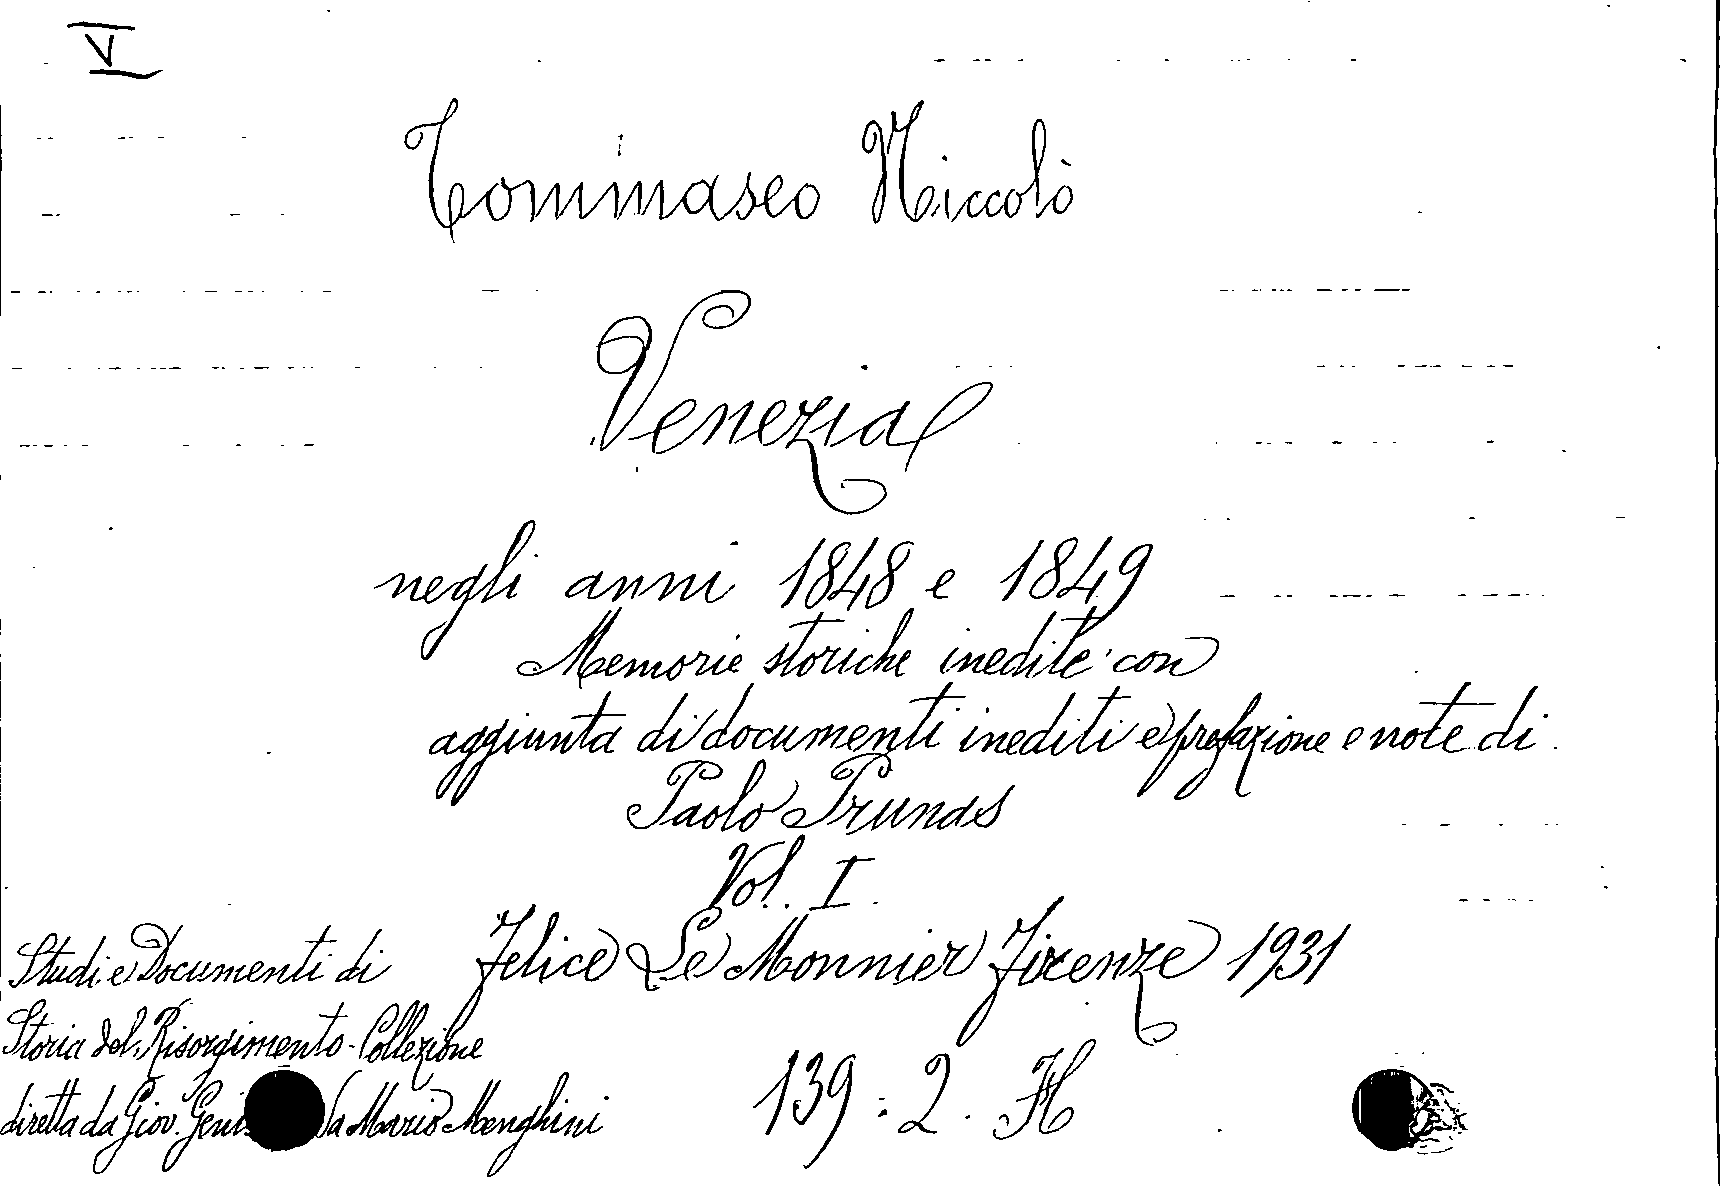 V
Tommaseo Niccolò
Venezia
negli anni 1848 e 1849
Memorie storiche inedite con
aggiunta di documenti inediti e prefazione e note di
Paolo Prunas
Vol. I.
Felice Le Monnier Firenze 1931
Studi e Documenti di
Storia del Risorgimento - Collezione
diretta da Giov. da Mario Menghini
139. 2. H